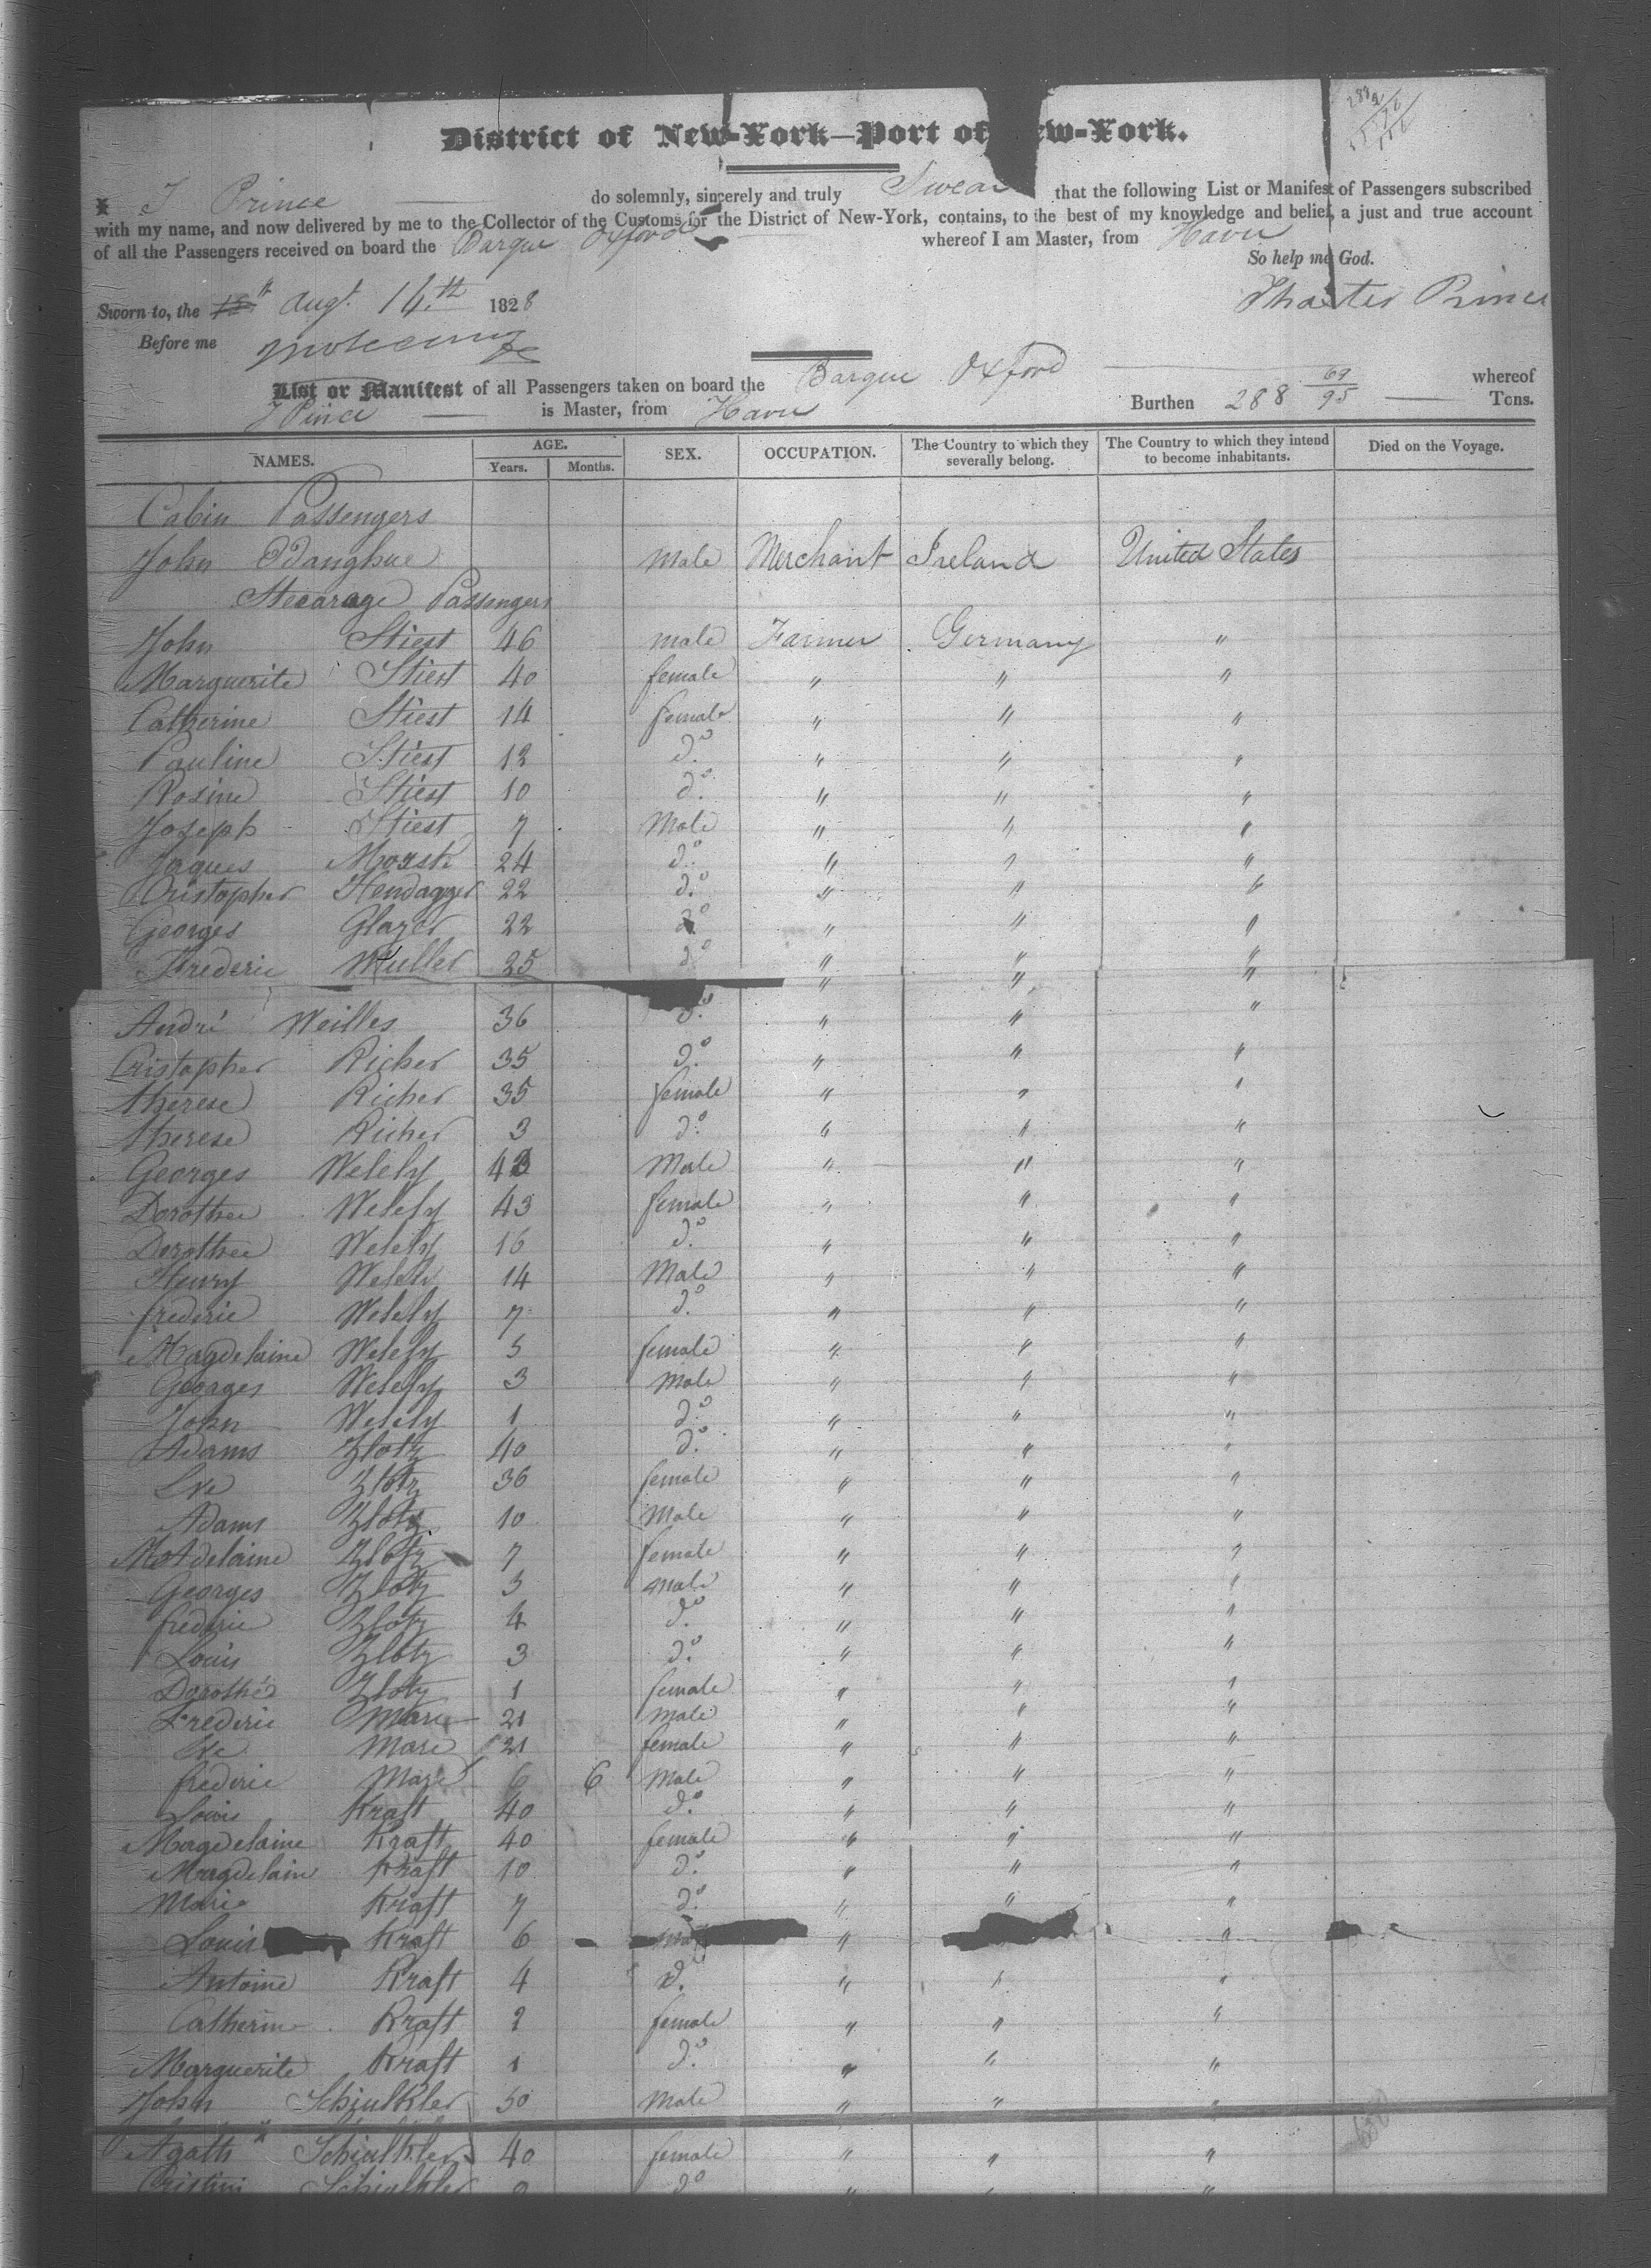 District of New-York—Port of ew-York.
I Prince do solemnly, sincerely and truly Swear that the following List or Manifest of Passengers subscribed
with my name, and now delivered by me to the Collector of the Customs for the District of New-York, contains, to the best of my knowledge and belief, a just and true account
of all the Passengers received on board the Barque Oxford whereof I am Master, from Havre
So help me God.
Sworn to, the Augt. 14th 1828 Thaxter Prince
Before me
List or Manifest of all Passengers taken on board the Barque Oxford whereof
J Prince is Master, from Havre Burthen 288 69/95 Tons.
NAMES. AGE. Years. Months. SEX. OCCUPATION. The Country to which they severally belong. The Country to which they intend to become inhabitants. Died on the Voyage.
Cabin Passengers
John ODanghue Male Merchant Ireland United States
Stearage Passengers
John Stiest 46 male Farmer Germany "
Marguerite Stiest 40 female " " "
Catherine Stiest 14 female " " "
Pauline Stiest 12 do. " " "
Rosine Stiest 10 do. " " "
Joseph Stiest 7 Male " " "
Jaques 24 do. " " "
Cristopher 22 do. " " "
Georges Glazer 22 do " " "
Frederic Muller 25 do " " "
" " "
André Weilles 36 do. " " "
Cristopher Richer 35 do. " " "
therese Richer 35 female " " "
therese Richer 3 do. " " "
Georges Welely 43 Male " " "
Dorothee Welely 43 female " " "
Dorothee Welely 16 do. " " "
Henry Welely 14 Male " " "
frederic Welely 7 do. " " "
Magdelaine Welely 5 female " " "
Georges Welely 3 Male " " "
John Welely 1 do. " " "
Adams Zlotz 40 do. " " "
Eve Zlotz 36 female " " "
Adams Zlotz 10 Male " " "
Madelaine Zlotz 7 female " " "
Georges Zlotz 5 Male " " "
frederic Zlotz 4 do. " " "
Louis Zlotz 3 do. " " "
Dorothée Zlotz 1 female " " "
Frederic Marie 21 Male " " "
Eve Marie 21 female " " "
frederic Marie 6 6 Male " " "
Louis Kraft 40 do. " " "
Magdelaine Kraft 40 female " " "
Magdelain Kraft 10 do. " " "
Marie Kraft 7 do. " " "
Louis Kraft 6 " "
Antoine Kraft 4 do. " " "
Catherine Kraft 2 female " " "
Marguerite Kraft 1 do. " " "
John Schiulkler 50 Male " " "
Agath Schiulkler 40 female " " "
Cristini Schiulkler do " "